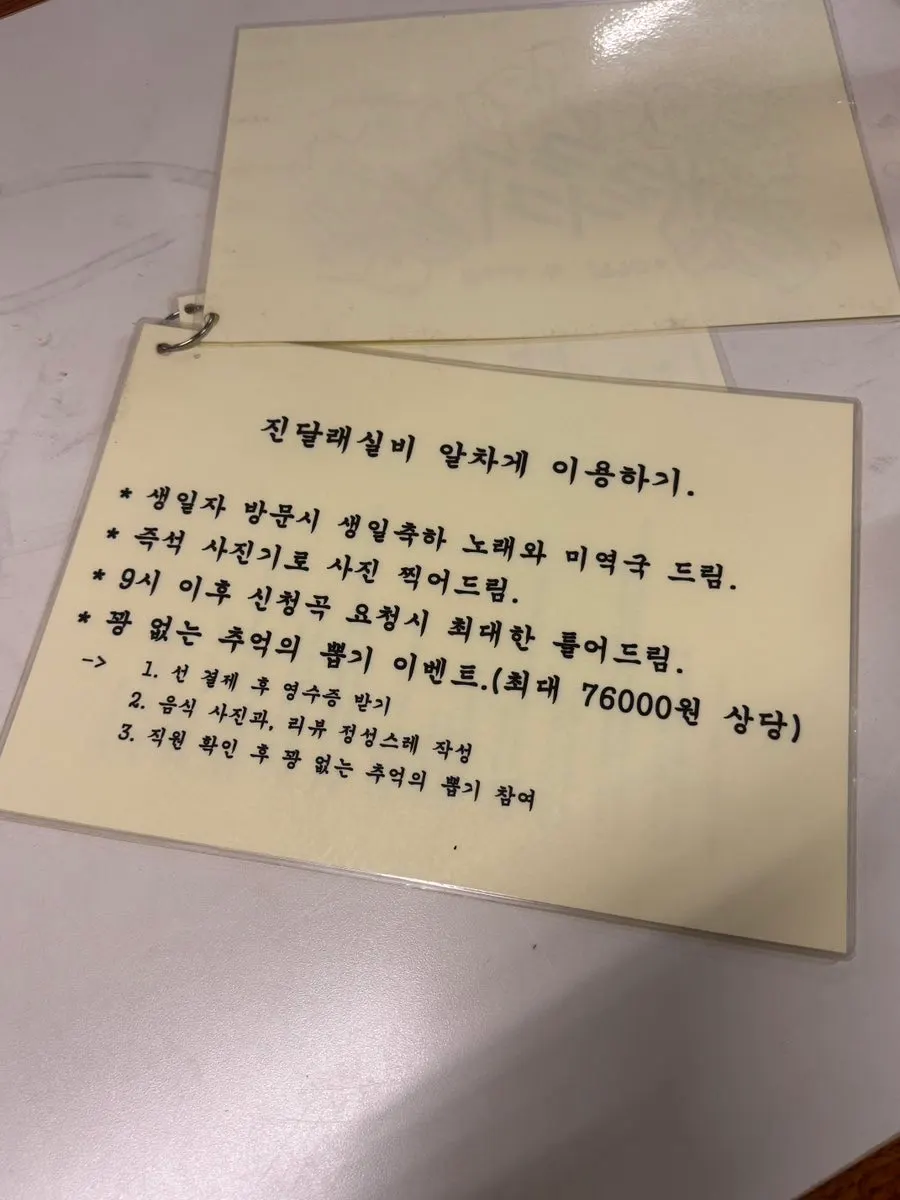 진달래실비 알차게 이용하기.
* 생일자 방문시 생일축하 노래와 미역국 드림.
* 즉석 사진기로 사진 찍어드림.
* 9시 이후 신청곡 요청시 최대한 틀어드림.
* 꽝 없는 추억의 뽑기 이벤트.(최대 76000원 상당)
-> 1. 선 결제 후 영수증 받기
2. 음식 사진과, 리뷰 정성스레 작성
3. 직원 확인 후 꽝 없는 추억의 뽑기 참여